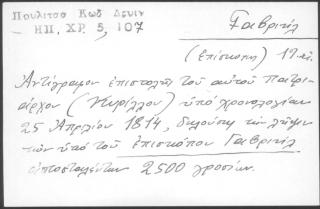 Πουλιτσα Κωδ Δεσιν
ΗΠ, ΧΡ 5, 107
Γαβριήλ
(ἐπίσκοπος) 19 αἰ.
Ἀντίγραφον ἐπιστολῆς τοῦ αὐτοῦ Πατρι-
άρχου (Κυρίλλου) ὑπό χρονολογίαν
25 Απριλίου 1814, δηλούσης τήν λῆψιν
τῶν ὑπό τοῦ ἐπισκόπου Γαβριήλ
ἀποσταλέντων 2500 γροσίων.